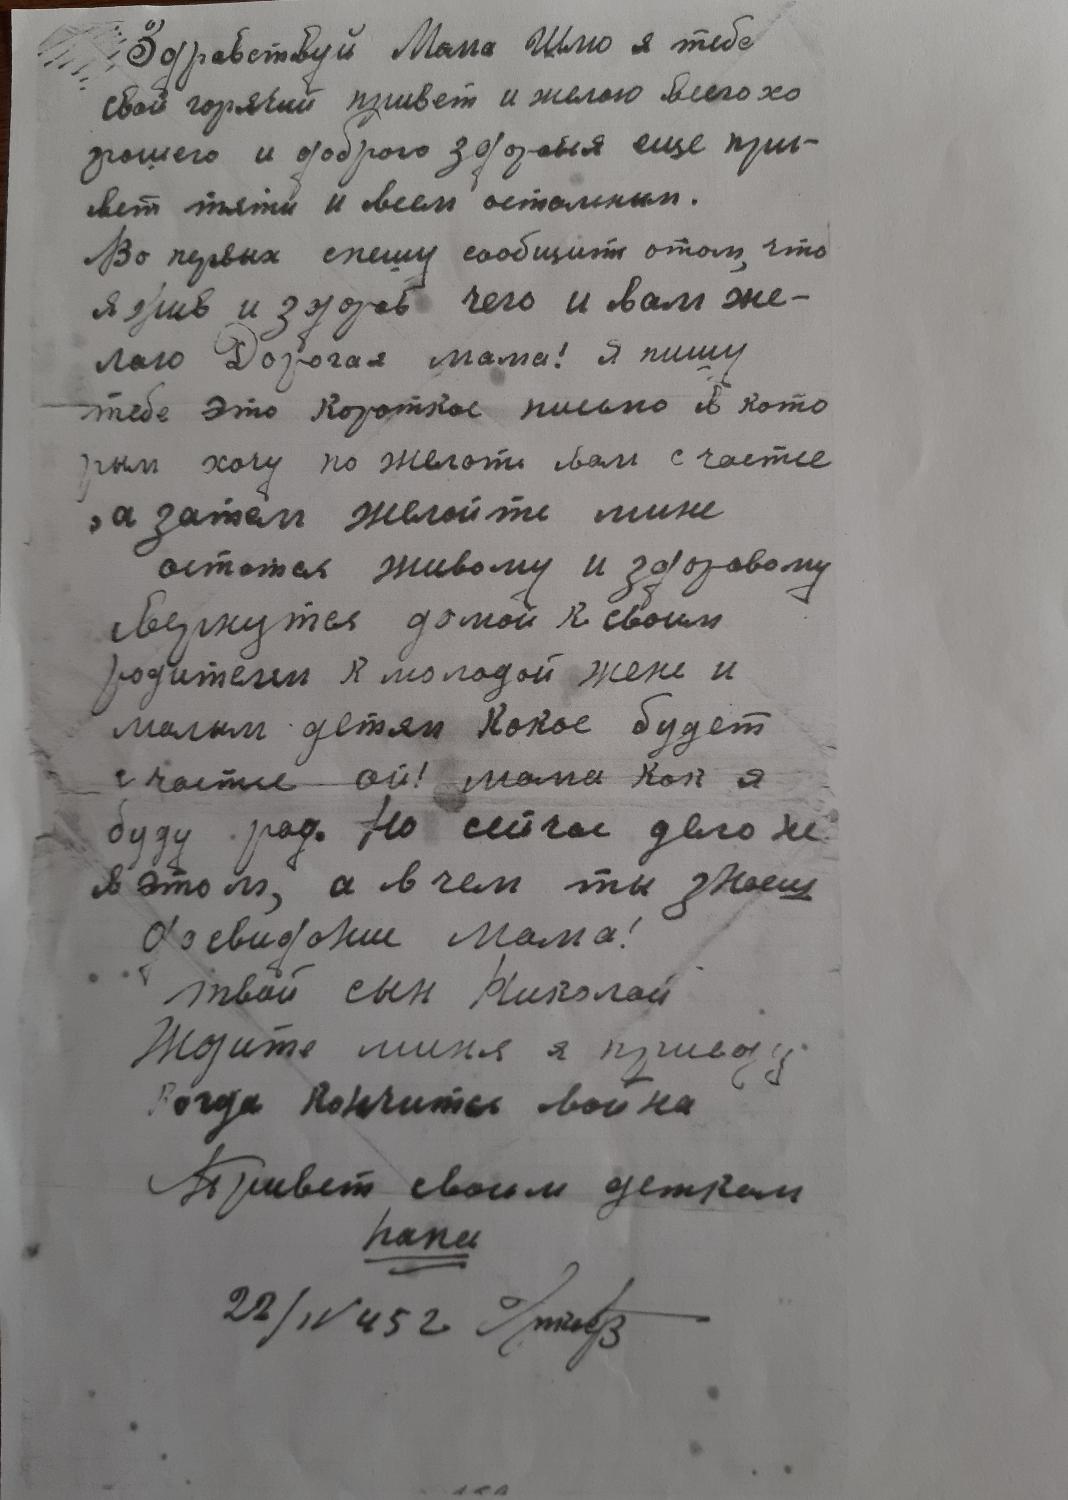 Здравствуй Мама Шлю я тебе
свой горячий привет и желаю всего хо
рошего и доброго здоровья еще при-
вет тяти и всем остальным.
Во первых спешу сообщить отом, что
я жив и здоров чего и вам же-
лаю Дорогая мама! Я пишу
тебе это короткое письмо в кото
рым хочу по желать вам счастье
, а затем желайте мине
остатся живому и здоровому
вернутся домой к своим
родителям к молодой жене и
малым детям Какое будет
счастье ой! мама как я
буду рад. Но сейчас дело не
в этом, а в чем ты знаеш
Досвидание мама!
твой сын Николай
Ждите миня я приеду
Когда кончится война
Привет своим деткам
папа
22/IV 45 г.